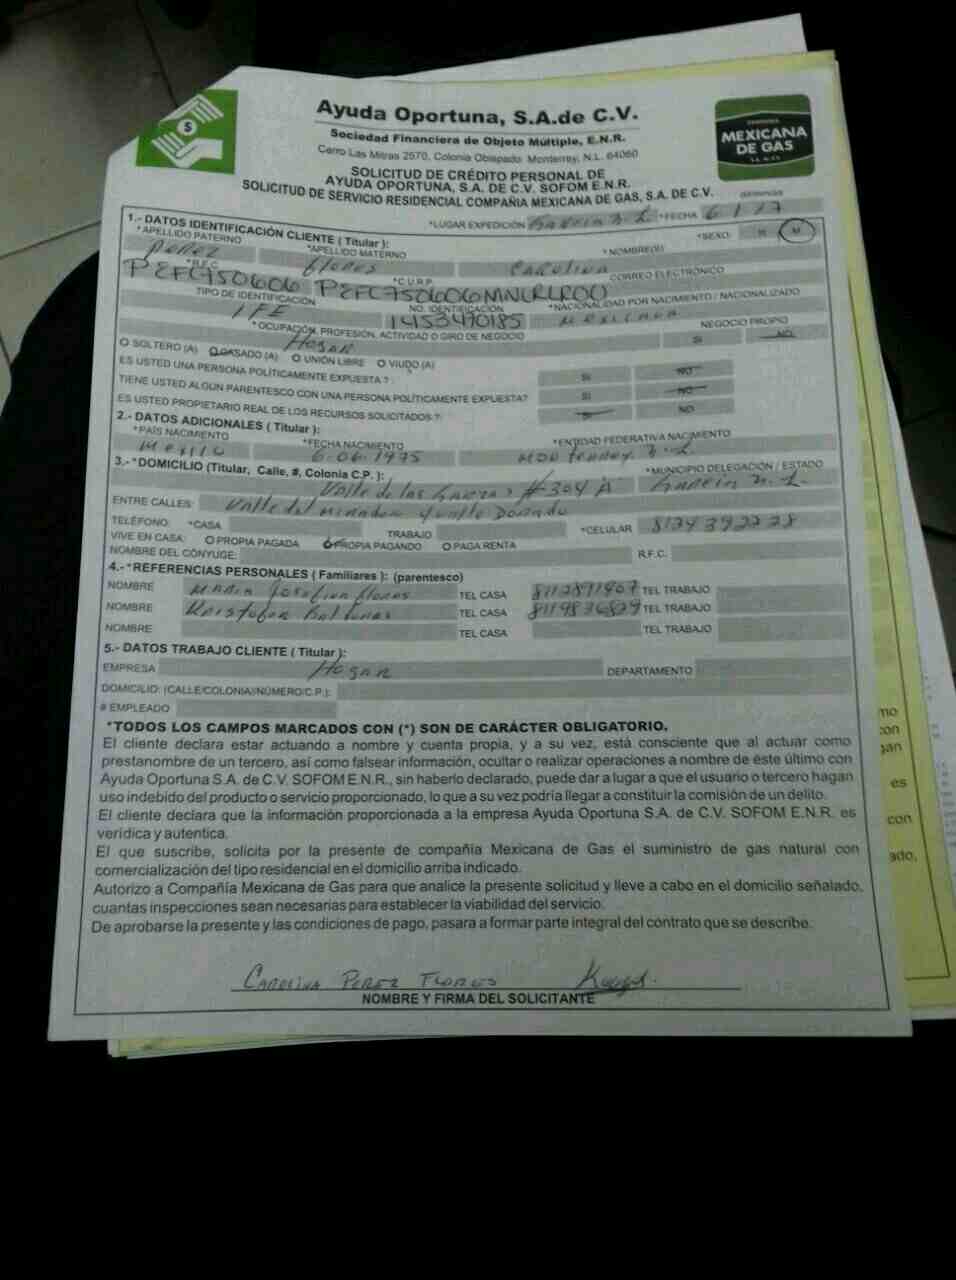 Ayuda Oportuna, S.A.de C.V.
Sociedad Financiera de Objeto Múltiple, E.N.R.
Cerro Las Mitras 2570, Colonia Obispado Monterrey, N.L. 64060
$
MEXICANA
DE GAS
SOLICITUD DE CRÉDITO PERSONAL DE
AYUDA OPORTUNA, S.A. DE C.V. SOFOM E.N.R.
SOLICITUD DE SERVICIO RESIDENCIAL COMPAÑIA MEXICANA DE GAS, S.A. DE C.V.
*LUGAR EXPEDICIÓN García N.L *FECHA 6/1/17
1.- DATOS IDENTIFICACIÓN CLIENTE ( Titular ): *SEXO: H M
*APELLIDO PATERNO *APELLIDO MATERNO *NOMBRE(S)
Perez flores Carolina
*R.F.C. *C.U.R.P. CORREO ELECTRÓNICO
PEFC750606 PEFC750606MNLRLR00
TIPO DE IDENTIFICACIÓN NO. IDENTIFICACIÓN *NACIONALIDAD POR NACIMIENTO / NACIONALIZADO
IFE 14153470185 Mexicana
*OCUPACIÓN, PROFESIÓN, ACTIVIDAD O GIRO DE NEGOCIO NEGOCIO PROPIO
Hogar SI NO
SOLTERO (A) CASADO (A) UNIÓN LIBRE VIUDO (A)
ES USTED UNA PERSONA POLÍTICAMENTE EXPUESTA ? : SI NO
TIENE USTED ALGÚN PARENTESCO CON UNA PERSONA POLÍTICAMENTE EXPUESTA? SI NO
ES USTED PROPIETARIO REAL DE LOS RECURSOS SOLICITADOS ? SI NO
2.- DATOS ADICIONALES ( Titular ):
*PAÍS NACIMIENTO *FECHA NACIMIENTO *ENTIDAD FEDERATIVA NACIMIENTO
Mexico 6-06-1975 Monterrey N.L.
3.-*DOMICILIO (Titular, Calle, #, Colonia C.P. ): *MUNICIPIO DELEGACIÓN / ESTADO
Valle de las #304 A García N.L.
ENTRE CALLES: Valle del Mirador y valle Dorado
TELÉFONO: *CASA TRABAJO *CELULAR
VIVE EN CASA: PROPIA PAGADA PROPIA PAGANDO PAGA RENTA
NOMBRE DEL CÓNYUGE: R.F.C.
4.-*REFERENCIAS PERSONALES ( Familiares ): (parentesco)
NOMBRE Maria Josefina flores TEL CASA 8112891907 TEL TRABAJO
NOMBRE Kristofer TEL CASA 8119836829 TEL TRABAJO
NOMBRE TEL CASA TEL TRABAJO
5.- DATOS TRABAJO CLIENTE ( Titular ):
EMPRESA Hogar DEPARTAMENTO
DOMICILIO: (CALLE/COLONIA/NÚMERO/C.P.):
# EMPLEADO
*TODOS LOS CAMPOS MARCADOS CON (*) SON DE CARÁCTER OBLIGATORIO.
El cliente declara estar actuando a nombre y cuenta propia, y a su vez, está consciente que al actuar como
prestanombre de un tercero, así como falsear información, ocultar o realizar operaciones a nombre de éste último con
Ayuda Oportuna S.A. de C.V. SOFOM E.N.R., sin haberlo declarado, puede dar a lugar a que el usuario o tercero hagan
uso indebido del producto o servicio proporcionado, lo que a su vez podría llegar a constituir la comisión de un delito.
El cliente declara que la información proporcionada a la empresa Ayuda Oportuna S.A. de C.V. SOFOM E.N.R. es
verídica y autentica.
El que suscribe, solicita por la presente de compañía Mexicana de Gas el suministro de gas natural con
comercialización del tipo residencial en el domicilio arriba indicado.
Autorizo a Compañía Mexicana de Gas para que analice la presente solicitud y lleve a cabo en el domicilio señalado,
cuantas inspecciones sean necesarias para establecer la viabilidad del servicio.
De aprobarse la presente y las condiciones de pago, pasara a formar parte integral del contrato que se describe.
Carolina Perez Flores
NOMBRE Y FIRMA DEL SOLICITANTE